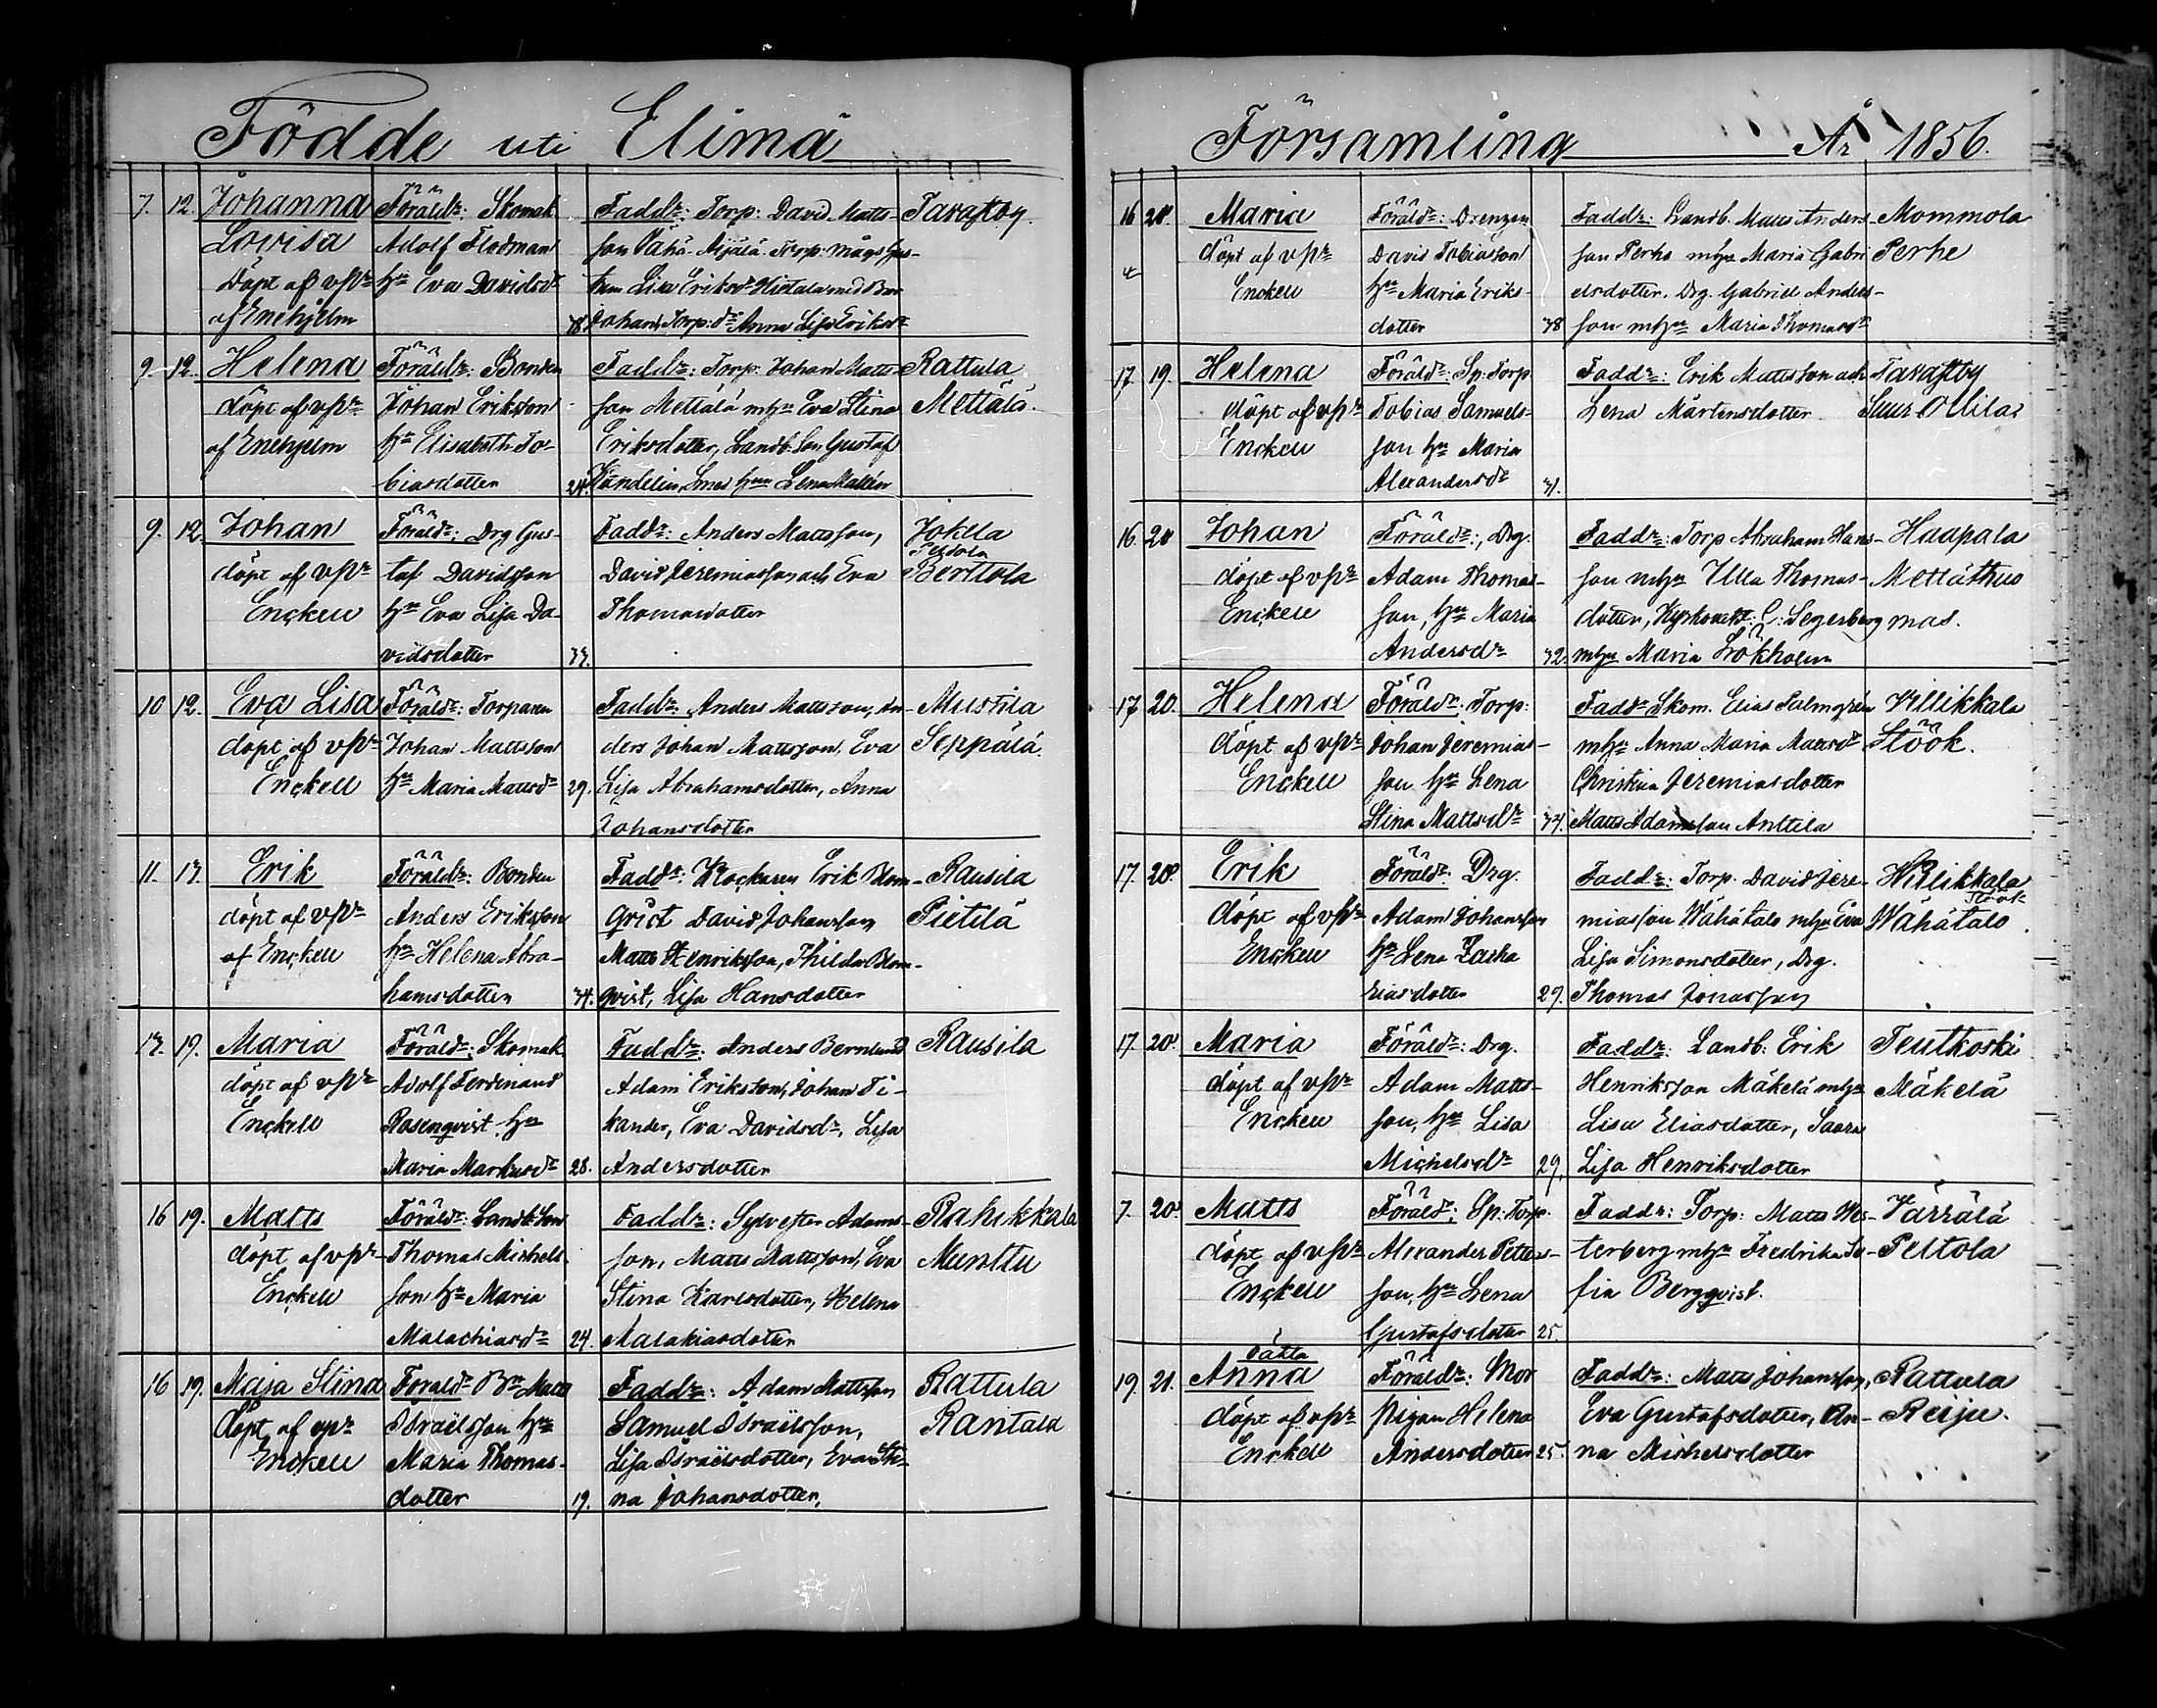 Födde uti Elimä
7. 12. Johanna
Lovisa
döpt af vPr
af Enehjelm
Föräldr: Skomak
Adolf Flodman
hu Eva Davidsdr
38
Faddr: Torp: David Matts-
son
Johan, Torp:dr Anna Lisa Eriksdr
Tavastby.
9. 12. Helena
döpt af vPr
af Enehjelm
Föräldr: Bonden
Johan Eriksson
hu Elisabeth To-
biasdotter
24.
Faddr: Torp. Johan Matts-
son Mettälä mhu Eva Stina
Eriksdotter, Landb. Son Gustaf
Rattula
Mettälä.
9. 12. Johan
döpt af vPr
Enckell
Föräldr: Drg Gus-
taf Davidsson
hu Eva Lisa Da-
vidsdotter
33.
Faddr: Anders Mattsson,
David Jeremiasson och Eva
Thomasdotter
Jokela
Peldola
Berttola
10 12. Eva Lisa
döpt af vPr
Enckell
Föräldr: Torparen
Johan Mattsson
hu Maria Mattsdr
29.
Faddr: Anders Mattsson, An-
ders Johan Mattsson, Eva
Lisa Abrahamsdotter, Anna
Johansdotter
Mustila
Seppälä.
11. 13. Erik
döpt af vPr
af Enckell
Föräldr: Bonden
Anders Eriksson
hu Helena Abra-
hamsdotter
34.
Faddr: Klockaren Erik Blom-
qvist David Johansson
Matts Henriksson, Thilda Blom-
qvist, Lisa Hansdotter
Rausila
Pietilä
13. 19. Maria
döpt af vPr
Enckell
Föräldr: Skomak.
Adolf Ferdinand
Rosenqvist hu
Maria Markusdr
28.
Faddr: Anders Bernlund
Adam Eriksson, Johan Ti-
kander, Eva Davidsdr, Lisa
Andersdotter
Rausila
16 19. Matts
döpt af vPr
Enckell
Föräldr: Landb. Son
Thomas Michels-
son hu Maria
Malachiasdr
24.
Faddr: Sylvester Adams-
son, Matts Mattsson, Eva
Stina Karlsdotter, Helena
Malakiasdoter
Rahikkala
Munttu
16 19. Maja Stina
döpt af vpr
Enckell
Föräldr Bn Matts
Israelsson hu
Maria Thomas-
dotter
19.
Faddr: Adam Mattsson
Samuel Israelsson,
Lisa Israelsdotter, Eva Sti-
na Johansdotter,
Rattula
Rantala
Församling År 1856.
16 20. Maria
döpt af vPr
Enckell
Föräldr: Drengen
David Tobiasson
hu Maria Eriks-
dotter
38
Faddr: Landb. Matts Anders-
son Perhe mhu Maria Gabri
elsdotter. Drg. Gabriel Anders-
son mhu Maria Thomasdr
Mommola
Perhe
17. 19. Helena
döpt af vPr
Enckell
Föräldr: Sp. Torp.
Tobias Samuels-
son hu Maria
Alexandersdr
31.
Faddr: Erik Mattsson och
Lena Mårtensdotter
Tavastby
Suur Ollila
16. 20 Johan
döpt af vPr
Enckell
Föräldr:, Drg.
Adam Thomas-
son, hu Maria
Andersdr
32.
Faddr: Torp Abraham Hans-
son mhu Ulla Thomas-
dotter, Kyrkovakt: C: Segerberg
mhu Maria Lökholm
Haapala
Mettäthus
mas.
17 20. Helena
döpt af vPr
Enckell
Föräldr: Torp:
Johan Jeremias-
son hu Lena
Stina Mattsdr
34.
Faddr Skom. Elias Palmgrén
mhu Anna Maria Mattsdr
Christina Jeremiasdotter
Matts Adamsson Anttila
Villikkala
Stöök.
17. 20. Erik
döpt af vPr
Enckell
Föräldr: Drg.
Adam Johansson
hu Lena Zacha
riasdotter
29.
Faddr: Torp. David Jere-
miasson Wähätalo mhu Eva
Lisa Simonsdotter, Drg.
Thomas Jonasson
Willikkala
Stöök
Wähätalo.
17. 20. Maria
döpt af vPr
Enckell
Föräldr: Drg.
Adam Matts-
son, hu Lisa
Michelsdr
29.
Faddr: Landb: Erik
Henriksson Mäkelä mhu
Lisa Eliasdotter, Saara
Lisa Henriksdotter
Teutkoski
Mäkelä
7. 20. Matts
döpt af vPr
Enckell
Föräldr: Sp: Torp.
Alexander Petters-
son, hu Lena
Gustafsdotter
25.
Faddr: Torp: Matts Wes-
terberg mhu Fredrika So-
fia Bergqvist.
Värrälä
Peltola
19. 21. oäkta
Anna
döpt af vPr
Enckell
Föräldr: Mor
pigan Helena
Andersdotter
25.
Faddr: Matts Johansson,
Eva Gustafsdotter, An-
na Michelsdotter
Rattula
Reiju.